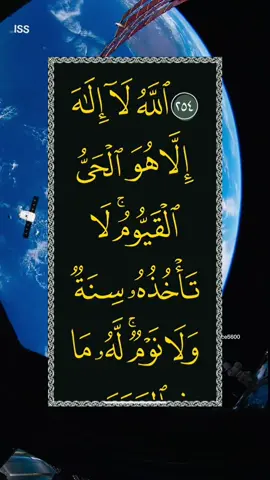 ISS
٢٥٤ ٱللَّهُ لَآ إِلَٰهَ
إِلَّا هُوَ ٱلْحَىُّ
ٱلْقَيُّومُ ۚ لَا
تَأْخُذُهُۥ سِنَةٌ
وَلَا نَوْمٌ ۚ لَّهُۥ مَا